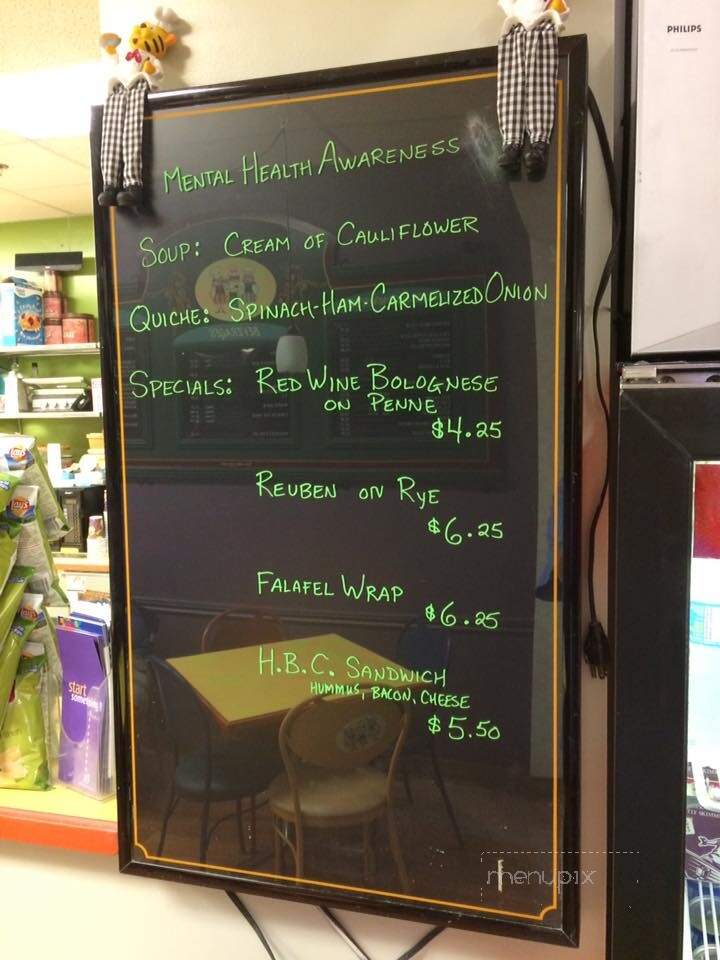 PHILIPS
MENTAL HEALTH AWARENESS
SOUP: CREAM OF CAULIFLOWER
QUICHE: SPINACH-HAM-CARMELIZED ONION
SPECIALS: RED WINE BOLOGNESE
ON PENNE
$4.25
REUBEN ON RYE
$6.25
FALAFEL WRAP
$6.25
H.B.C. SANDWICH
HUMMUS, BACON, CHEESE
$5.50
Lay's
Lay's
start
something
menupix